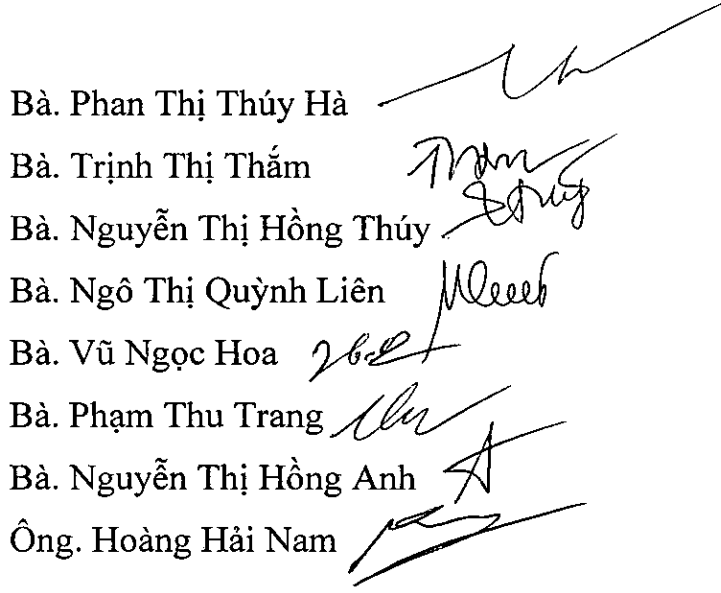 Bà. Phan Thị Thúy Hà
Bà. Trịnh Thị Thắm
Bà. Nguyễn Thị Hồng Thúy
Bà. Ngô Thị Quỳnh Liên
Bà. Vũ Ngọc Hoa
Bà. Phạm Thu Trang
Bà. Nguyễn Thị Hồng Anh
Ông. Hoàng Hải Nam